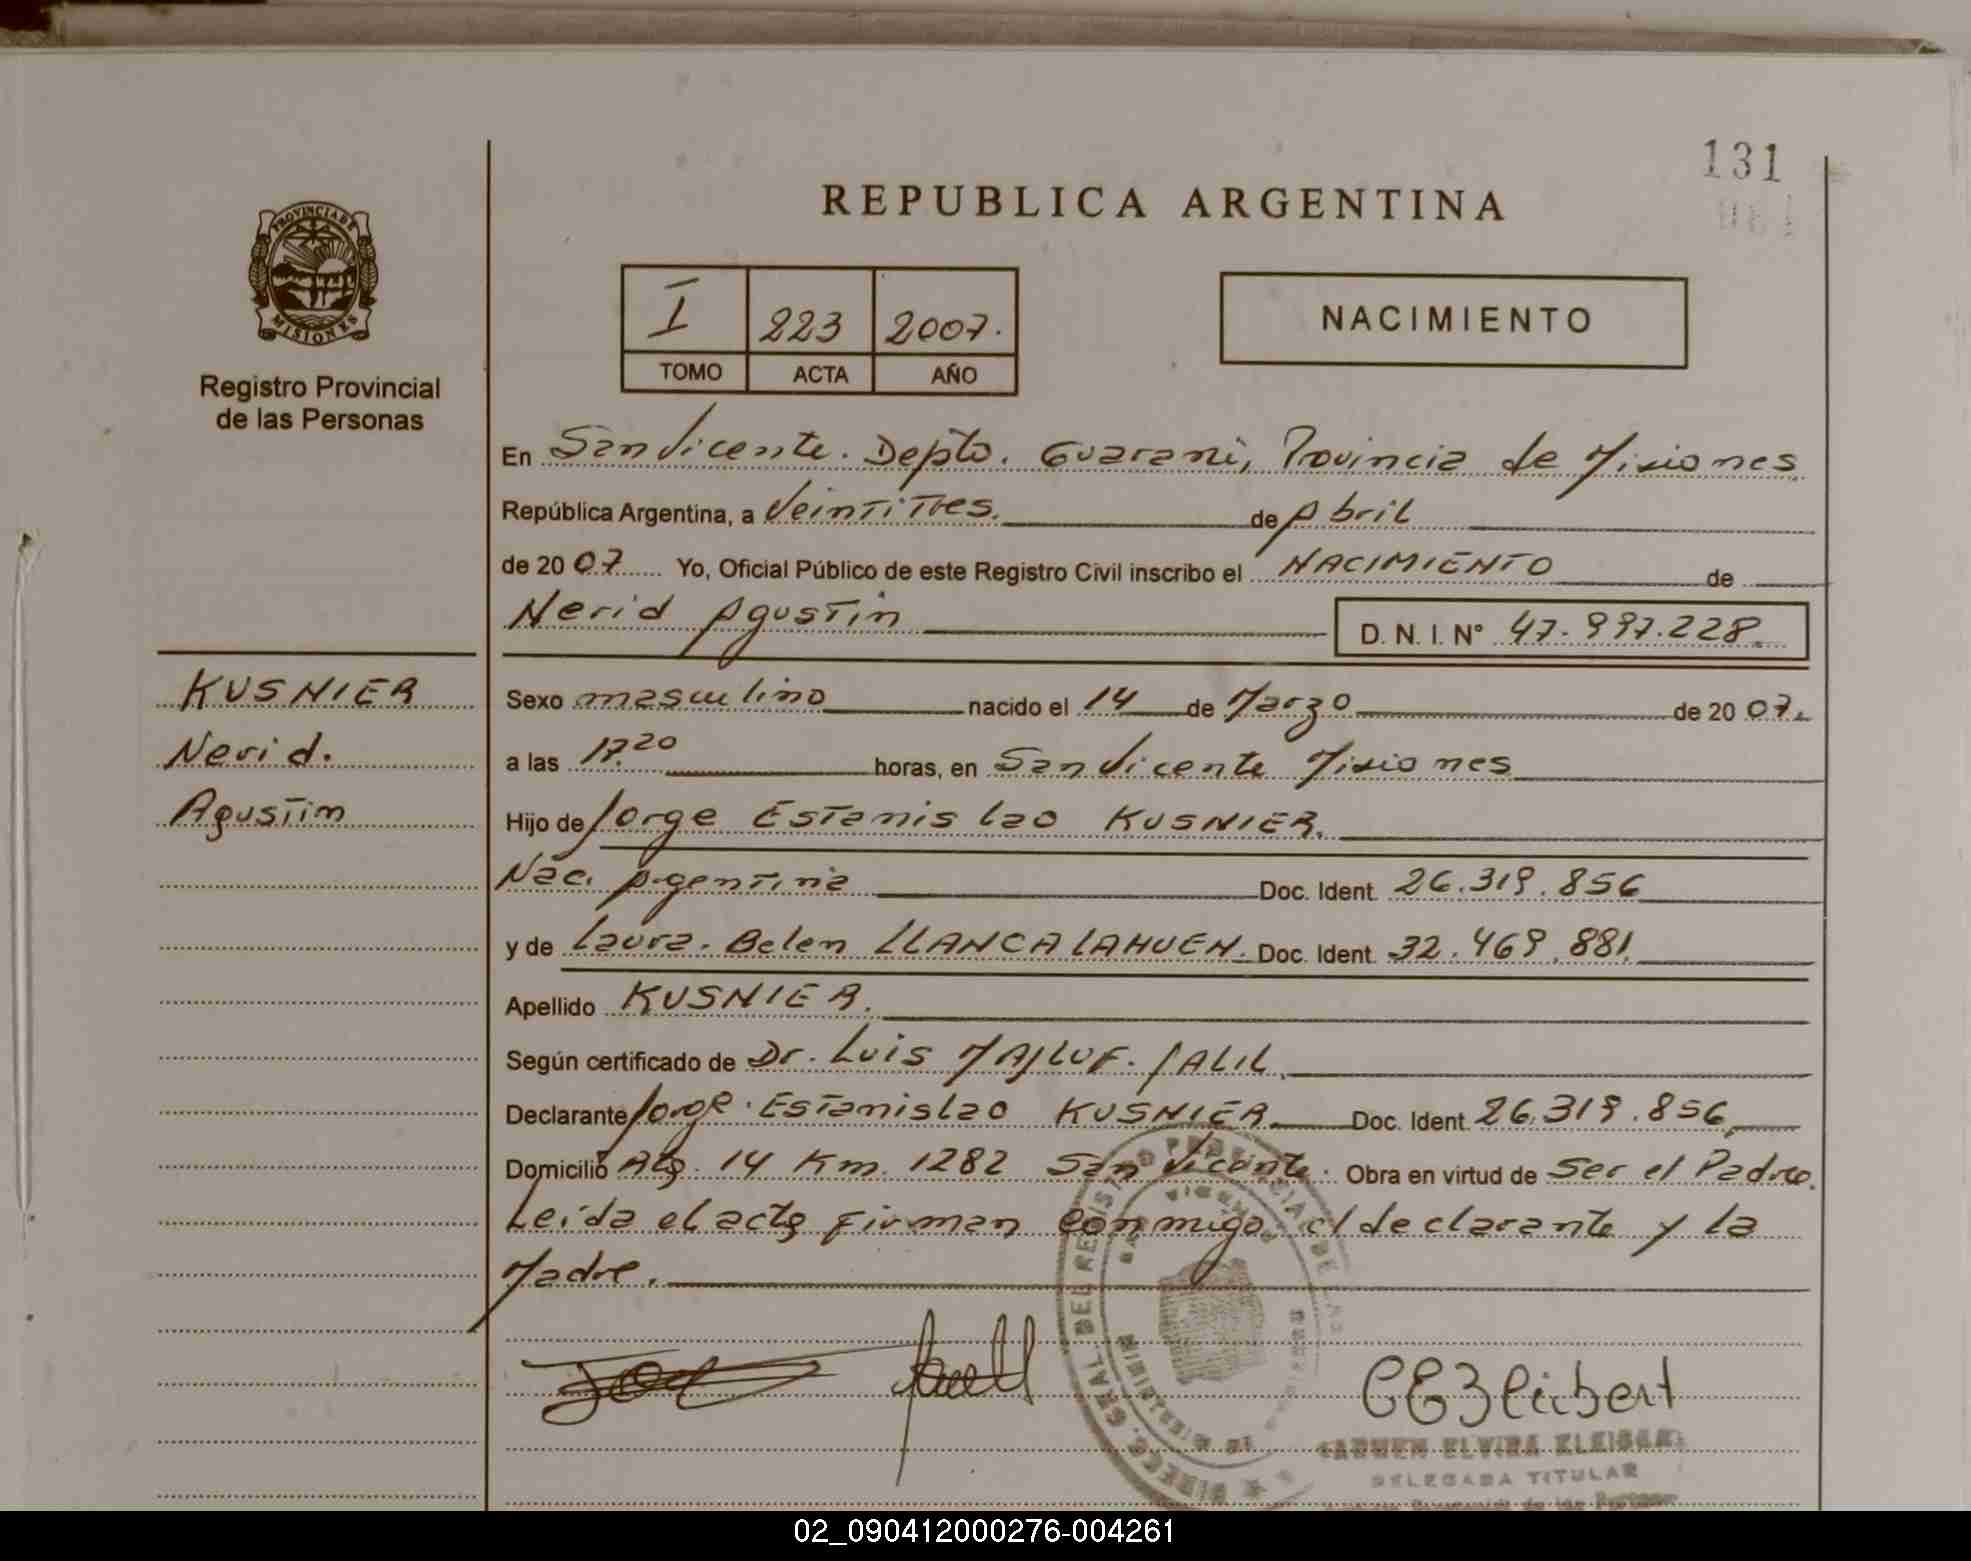 131
REPUBLICA ARGENTINA
PROVINCIA DE
MISIONES
Registro Provincial
de las Personas
I 223 2007.
TOMO ACTA AÑO
NACIMIENTO
En San Vicente. Depto. Guarani, Provincia de Misiones
República Argentina, a Veintitres. de Abril
de 2007 Yo, Oficial Público de este Registro Civil inscribo el NACIMIENTO de
Nerid Agustin D. N. I. N° 47.997.228.
KUSNIER
Nerid.
Agustin
Sexo masculino nacido el 14 de Marzo de 2007.
a las 17.20 horas, en San Vicente Misiones
Hijo de Jorge Estanislao KUSNIER.
Nac. Argentina Doc. Ident. 26.319.856
y de Laura. Belen LLANCALAHUEN. Doc. Ident. 32.469.881.
Apellido KUSNIER.
Según certificado de Dr. Luis MAJLUF. JALIL.
Declarante Jorge. Estanislao KUSNIER Doc. Ident. 26.319.856,
Domicilio Alg. 14 Km. 1282 San Vicente. Obra en virtud de Ser el Padre.
Leida el acta firman conmigo, el declarante y la
Madre.
DIREC. GRAL. DEL REGISTRO PROVINCIAL DE LAS
CARMEN ELVIRA
DELEGADA TITULAR
02_090412000276-004261